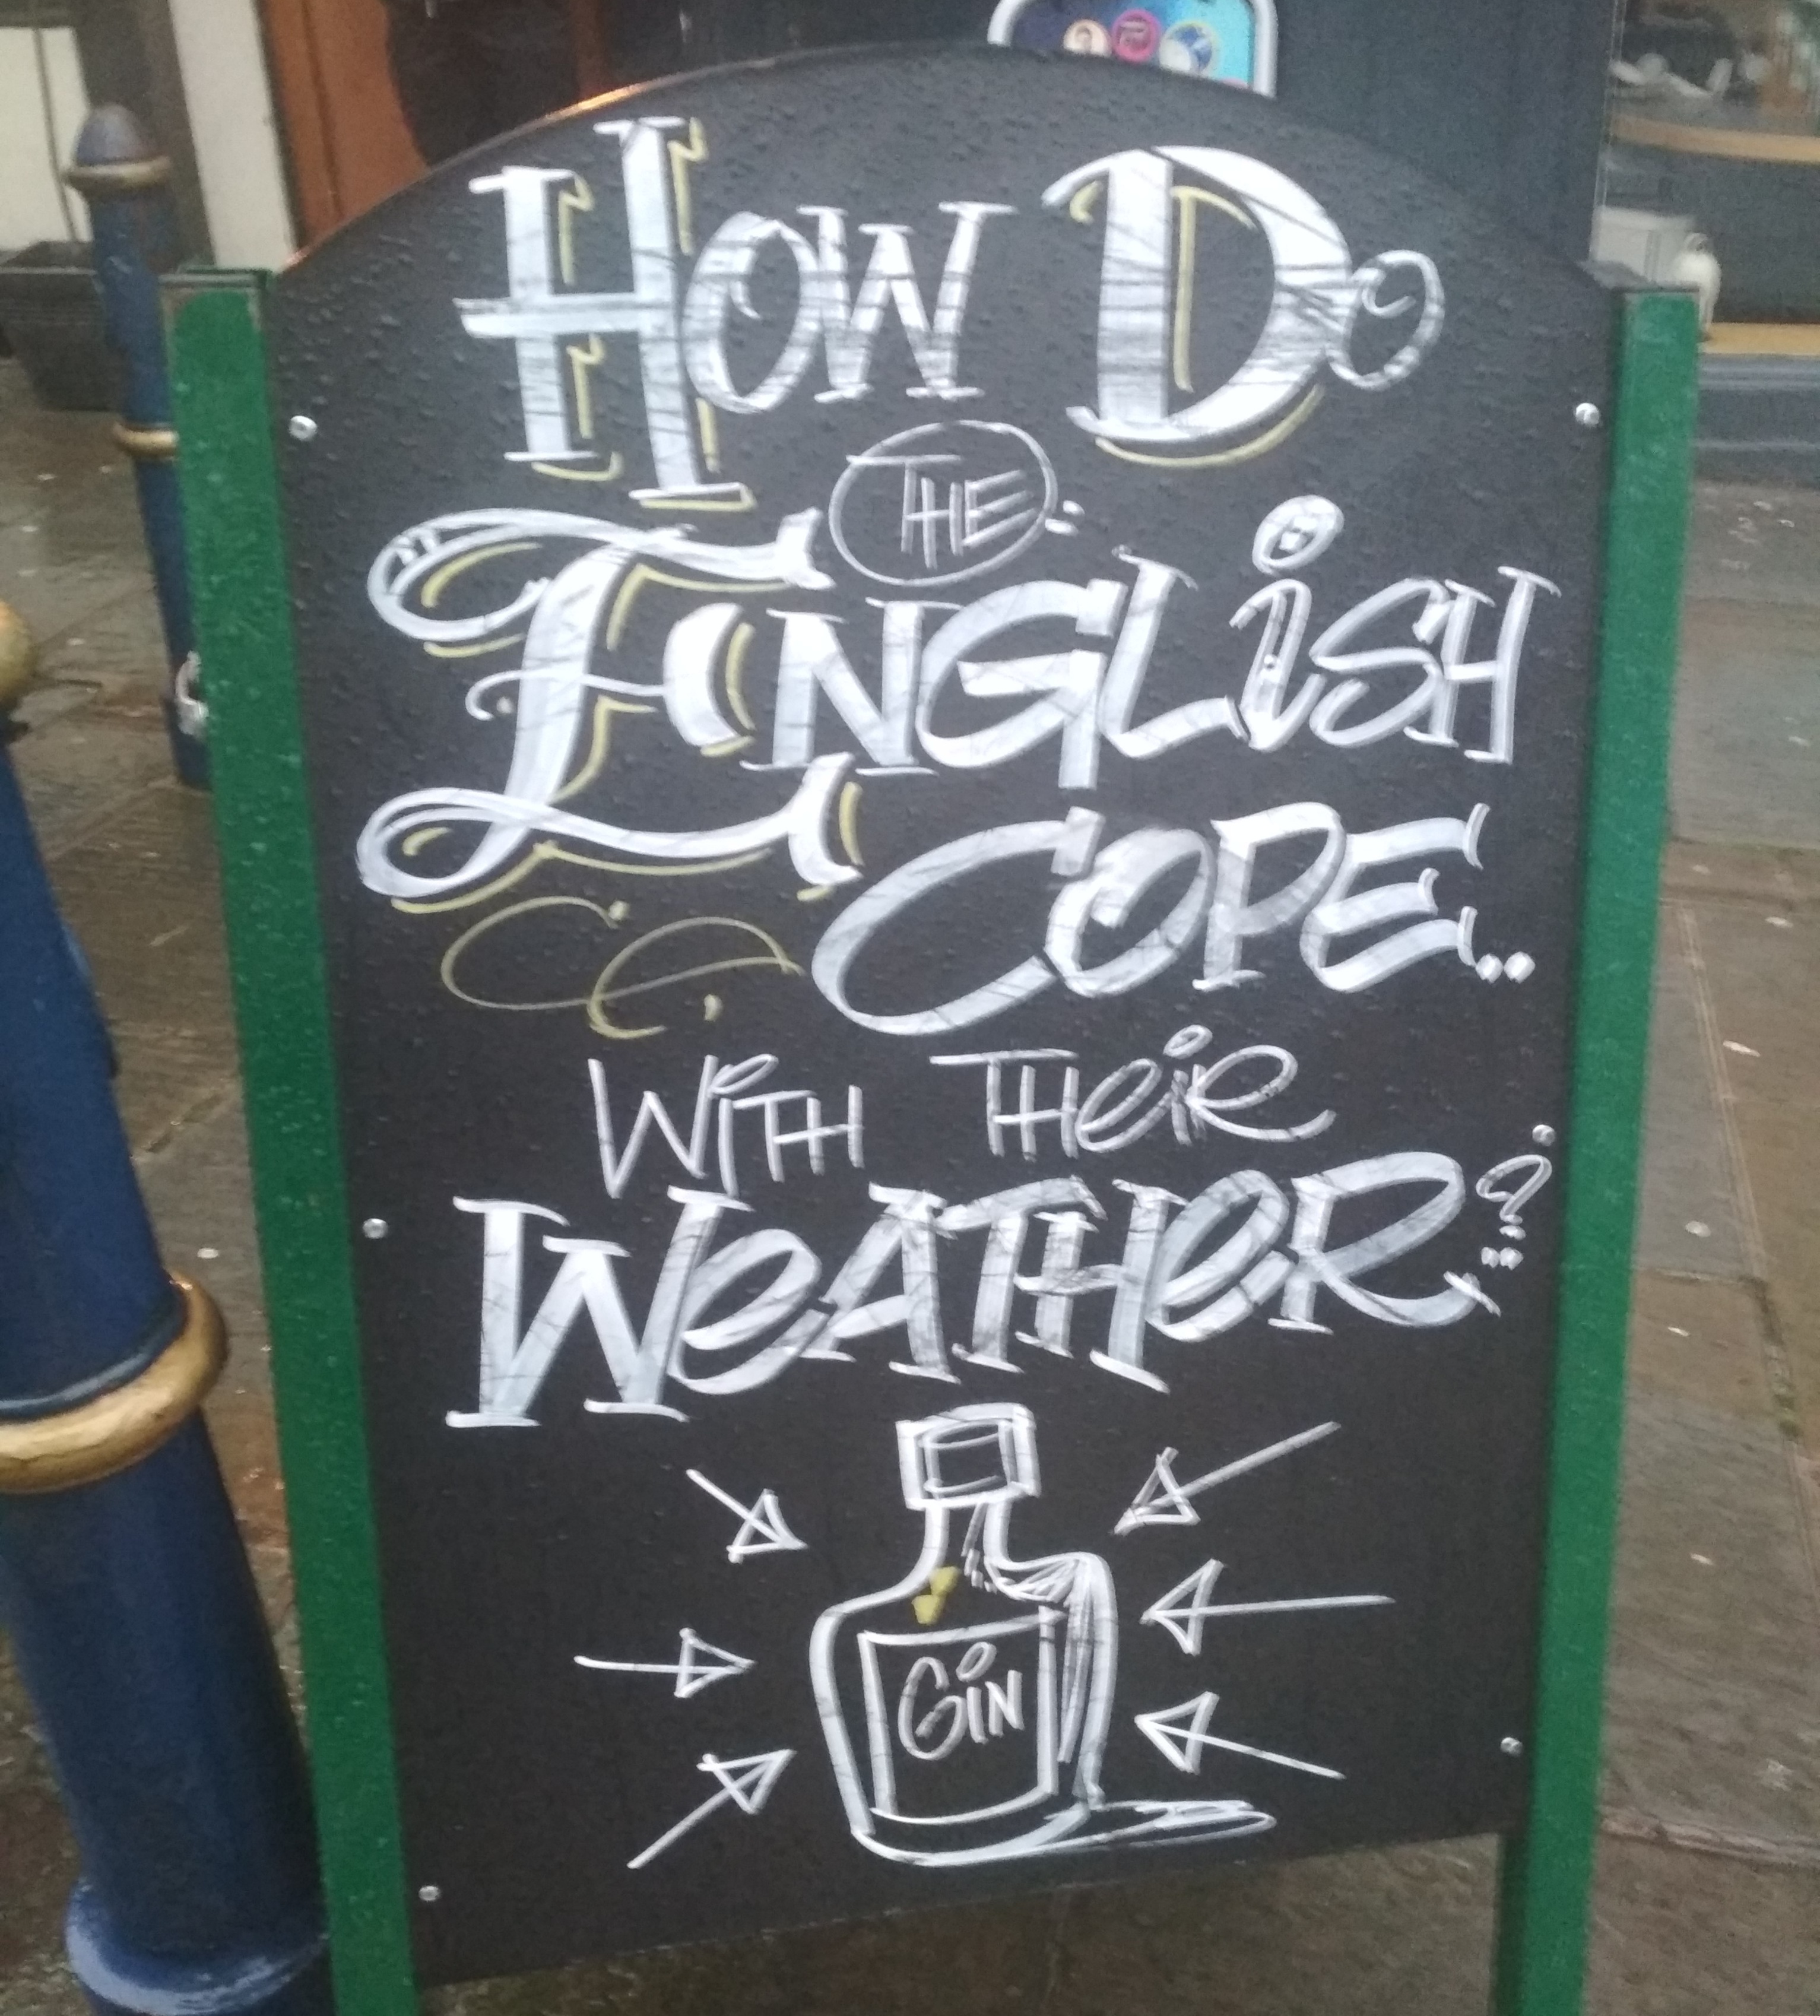 How Do
THE
ENGLiSH
COPE..
WiTH THeiR
WeATHeR?
GiN